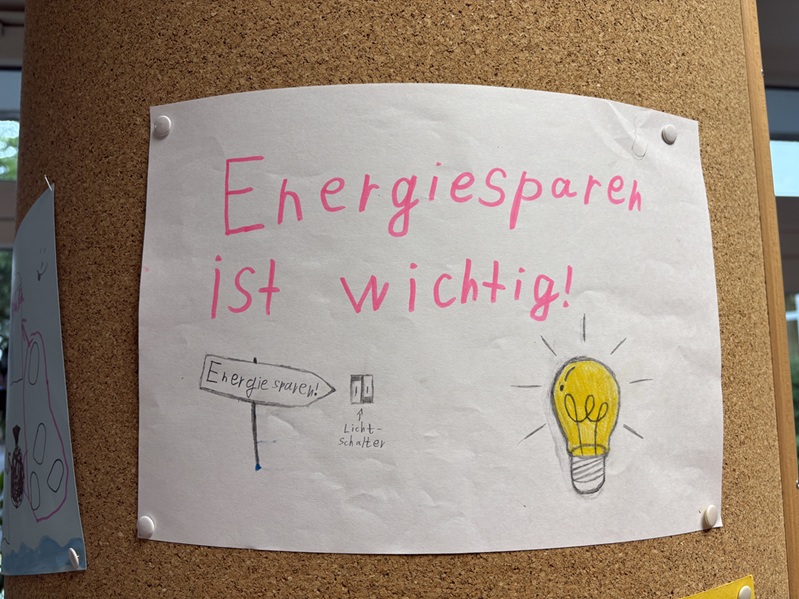 Energiesparen
ist wichtig!
Energie sparen!
Licht-
schalter